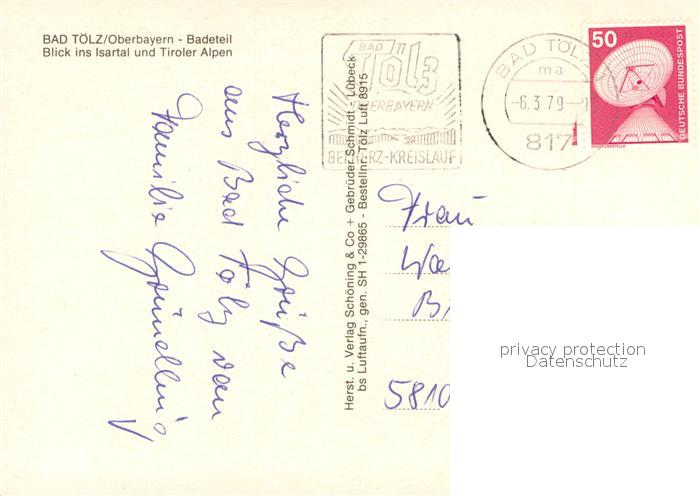 BAD TÖLZ/Oberbayern - Badeteil
Blick ins Isartal und Tiroler Alpen
Herzliche Grüße
aus Bad Tölz von
Familie Gründling
Herst. u. Verlag Schöning & Co + Gebrüder Schmidt - Lübeck
bs Luftaufn., gen. SH 1-29865 - Bestellnr. Tölz Luft 8915
BAD
Tölz
OBERBAYERN
BEI HERZ-KREISLAUF
BAD TÖLZ
ma
-6.3.79-
817
50
DEUTSCHE BUNDESPOST
ERDFUNKSTELLE
Frau
5810
privacy protection
Datenschutz